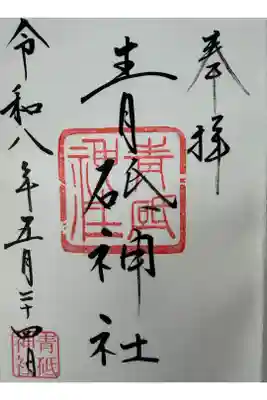 奉拝
青砥神社
令和八年五月二十四日
青砥神社
青砥神社